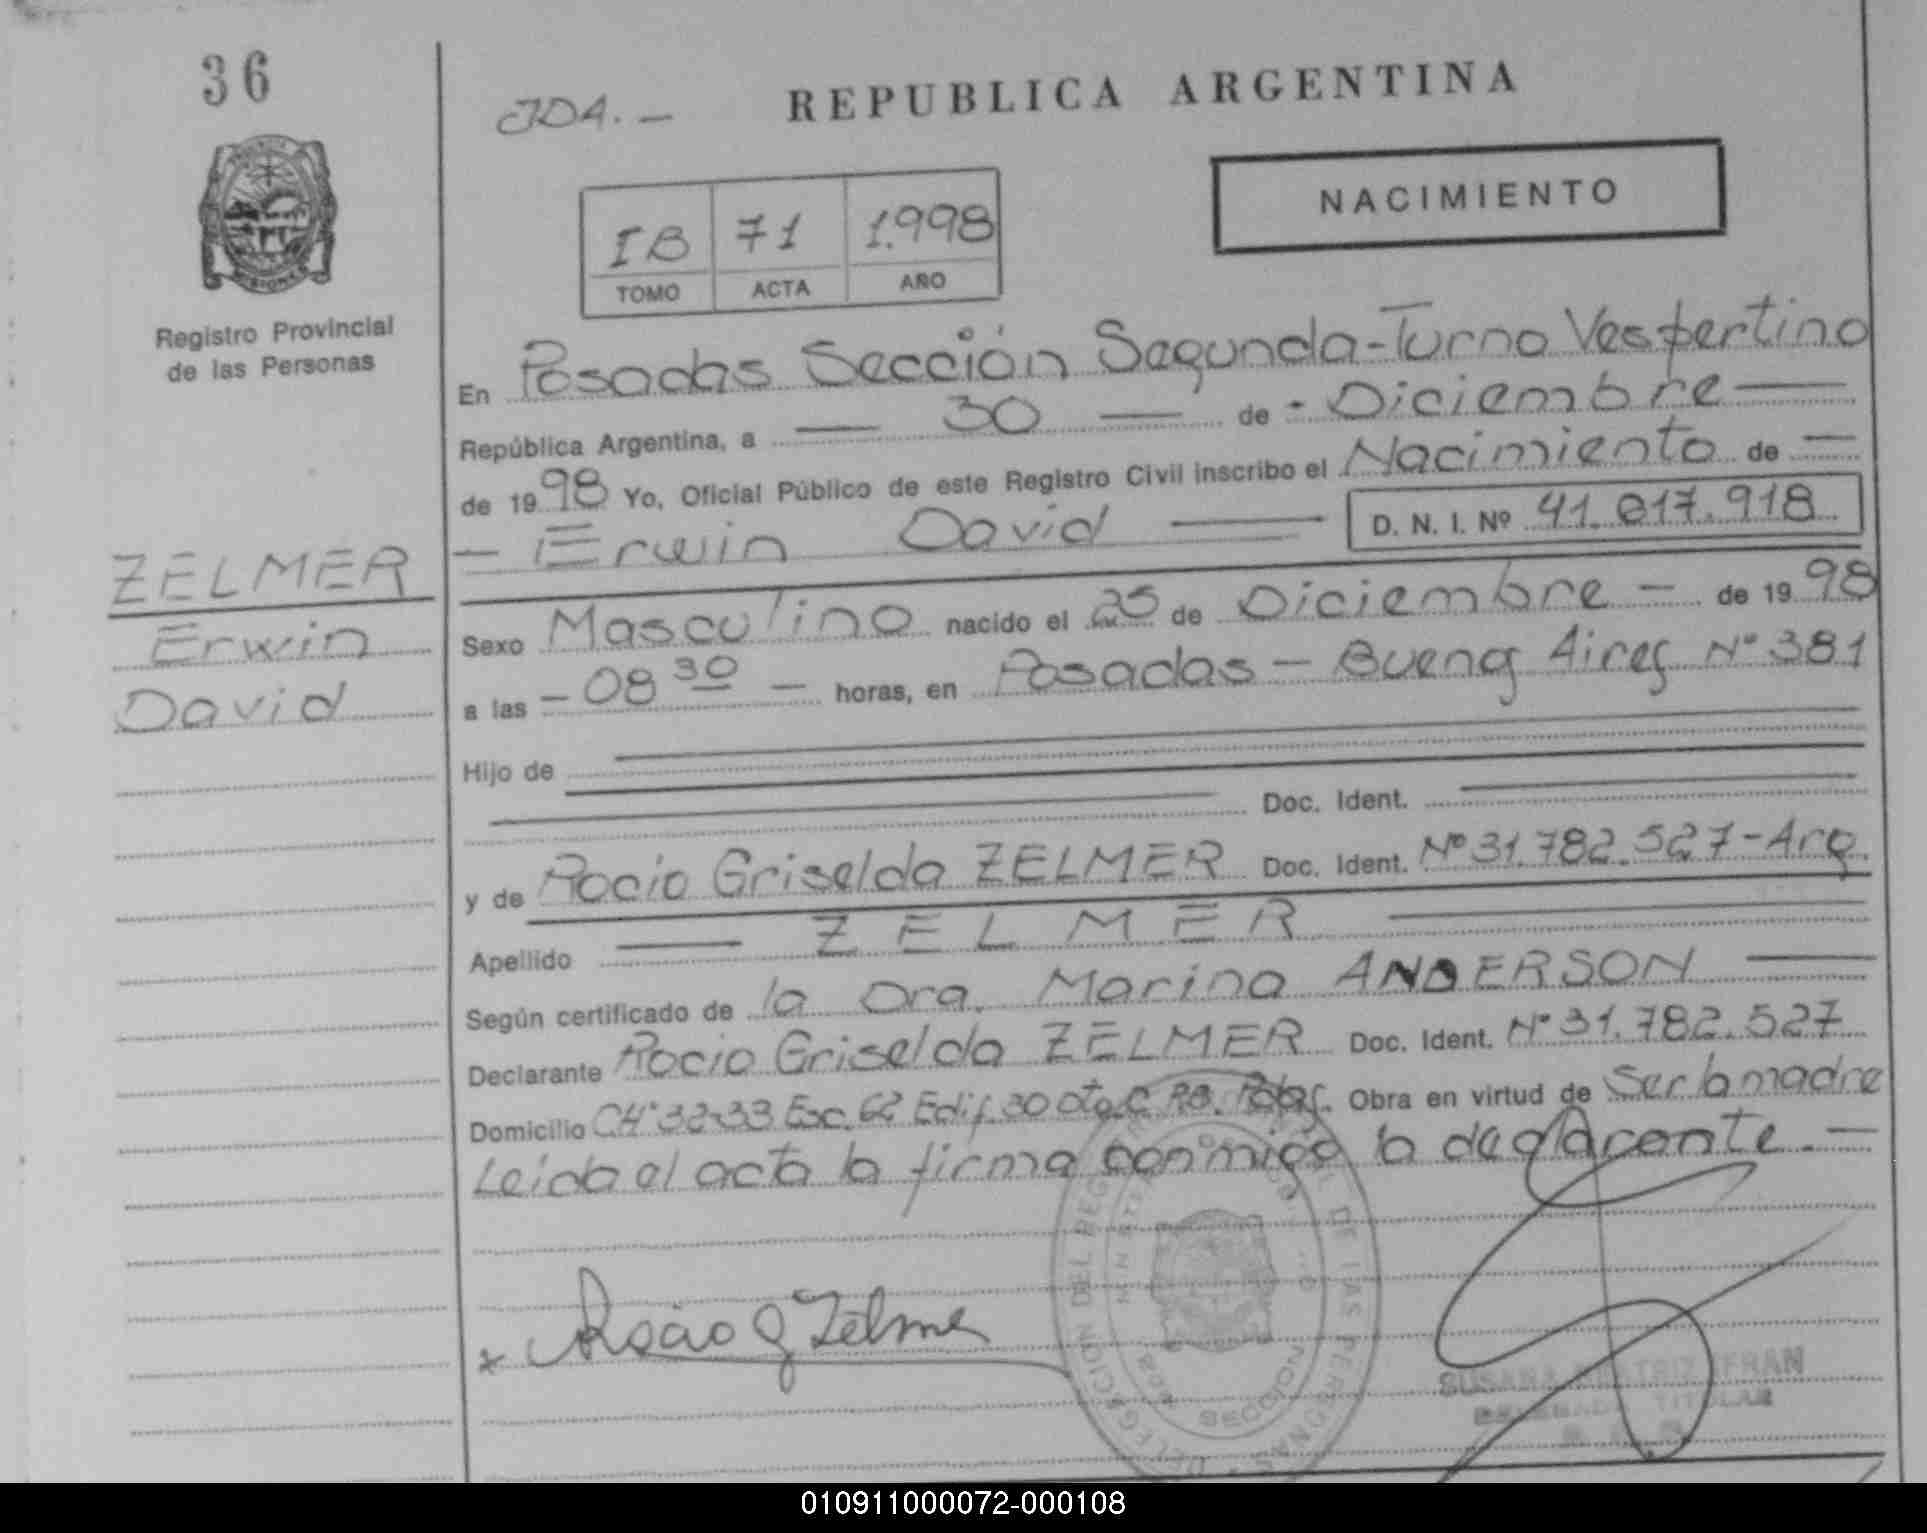 36
JDA. —
REPUBLICA ARGENTINA
NACIMIENTO
IB 71 1.998
TOMO ACTA AÑO
Registro Provincial
de las Personas
En Posadas Sección Segunda-Turno Vespertino
República Argentina, a — 30 — de - Diciembre —
de 19 98 Yo, Oficial Público de este Registro Civil inscribo el Nacimiento de —
— Erwin David — D. N. I. Nº 41.017.918
ZELMER
Erwin
David
Sexo Masculino nacido el 25 de Diciembre — de 19 98
a las — 08 30 — horas, en Posadas — Buenos Aires Nº 381
Hijo de
Doc. Ident.
y de Rocio Griselda ZELMER Doc. Ident. Nº 31.782.527-Arg.
Apellido — ZELMER
Según certificado de la Dra. Marina ANDERSON —
Declarante Rocio Griselda ZELMER Doc. Ident. Nº 31.782.527
Domicilio CH' 32-33 Esc. 62 Edif. 30 Dto. C Obra en virtud de Ser la madre
Leida el acta la firma conmigo la declarante. —
x Rocio G Zelmer
DELEGACION DEL REGISTRO DE LAS PERSONAS
SECCION 2da
SUSANA BEATRIZ IFRAN
DELEGADA TITULAR
010911000072-000108